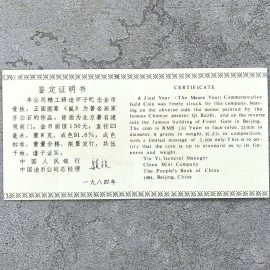 鉴定证明书
本公司精工铸造甲子纪念金币
壹枚。正面图案《鼠》为著名画家
齐白石的作品，背面为北京著名建
筑前门。金币面值150元，直径23
毫米，重8克，成色91.6%，成色
标准，重量合格，限量发行，共伍
千枚，谨于证实。
中国人民银行
中国造币公司总经理
一九八四年
CERTIFICATE
A Jiazi Year (The Mouse Year) Commemorative
Gold Coin was finely struck by this company, bear-
ing on the obverse side the mouse painted by the
famous Chinese painter Qi Baishi, and on the reverse
side the famous building of Front Gate in Beijing.
The coin is RMB 150 Yuan in face value, 23mm in
diameter, 8 grams in weight, 91.6% in composition,
with a limited mintage of 5,000 only. This is to cer-
tify that the coin is up to standard as to its fin-
eness and weight.
Yin Yi, General Manager
China Mint Company
The People's Bank of China
1984, Beijing, China